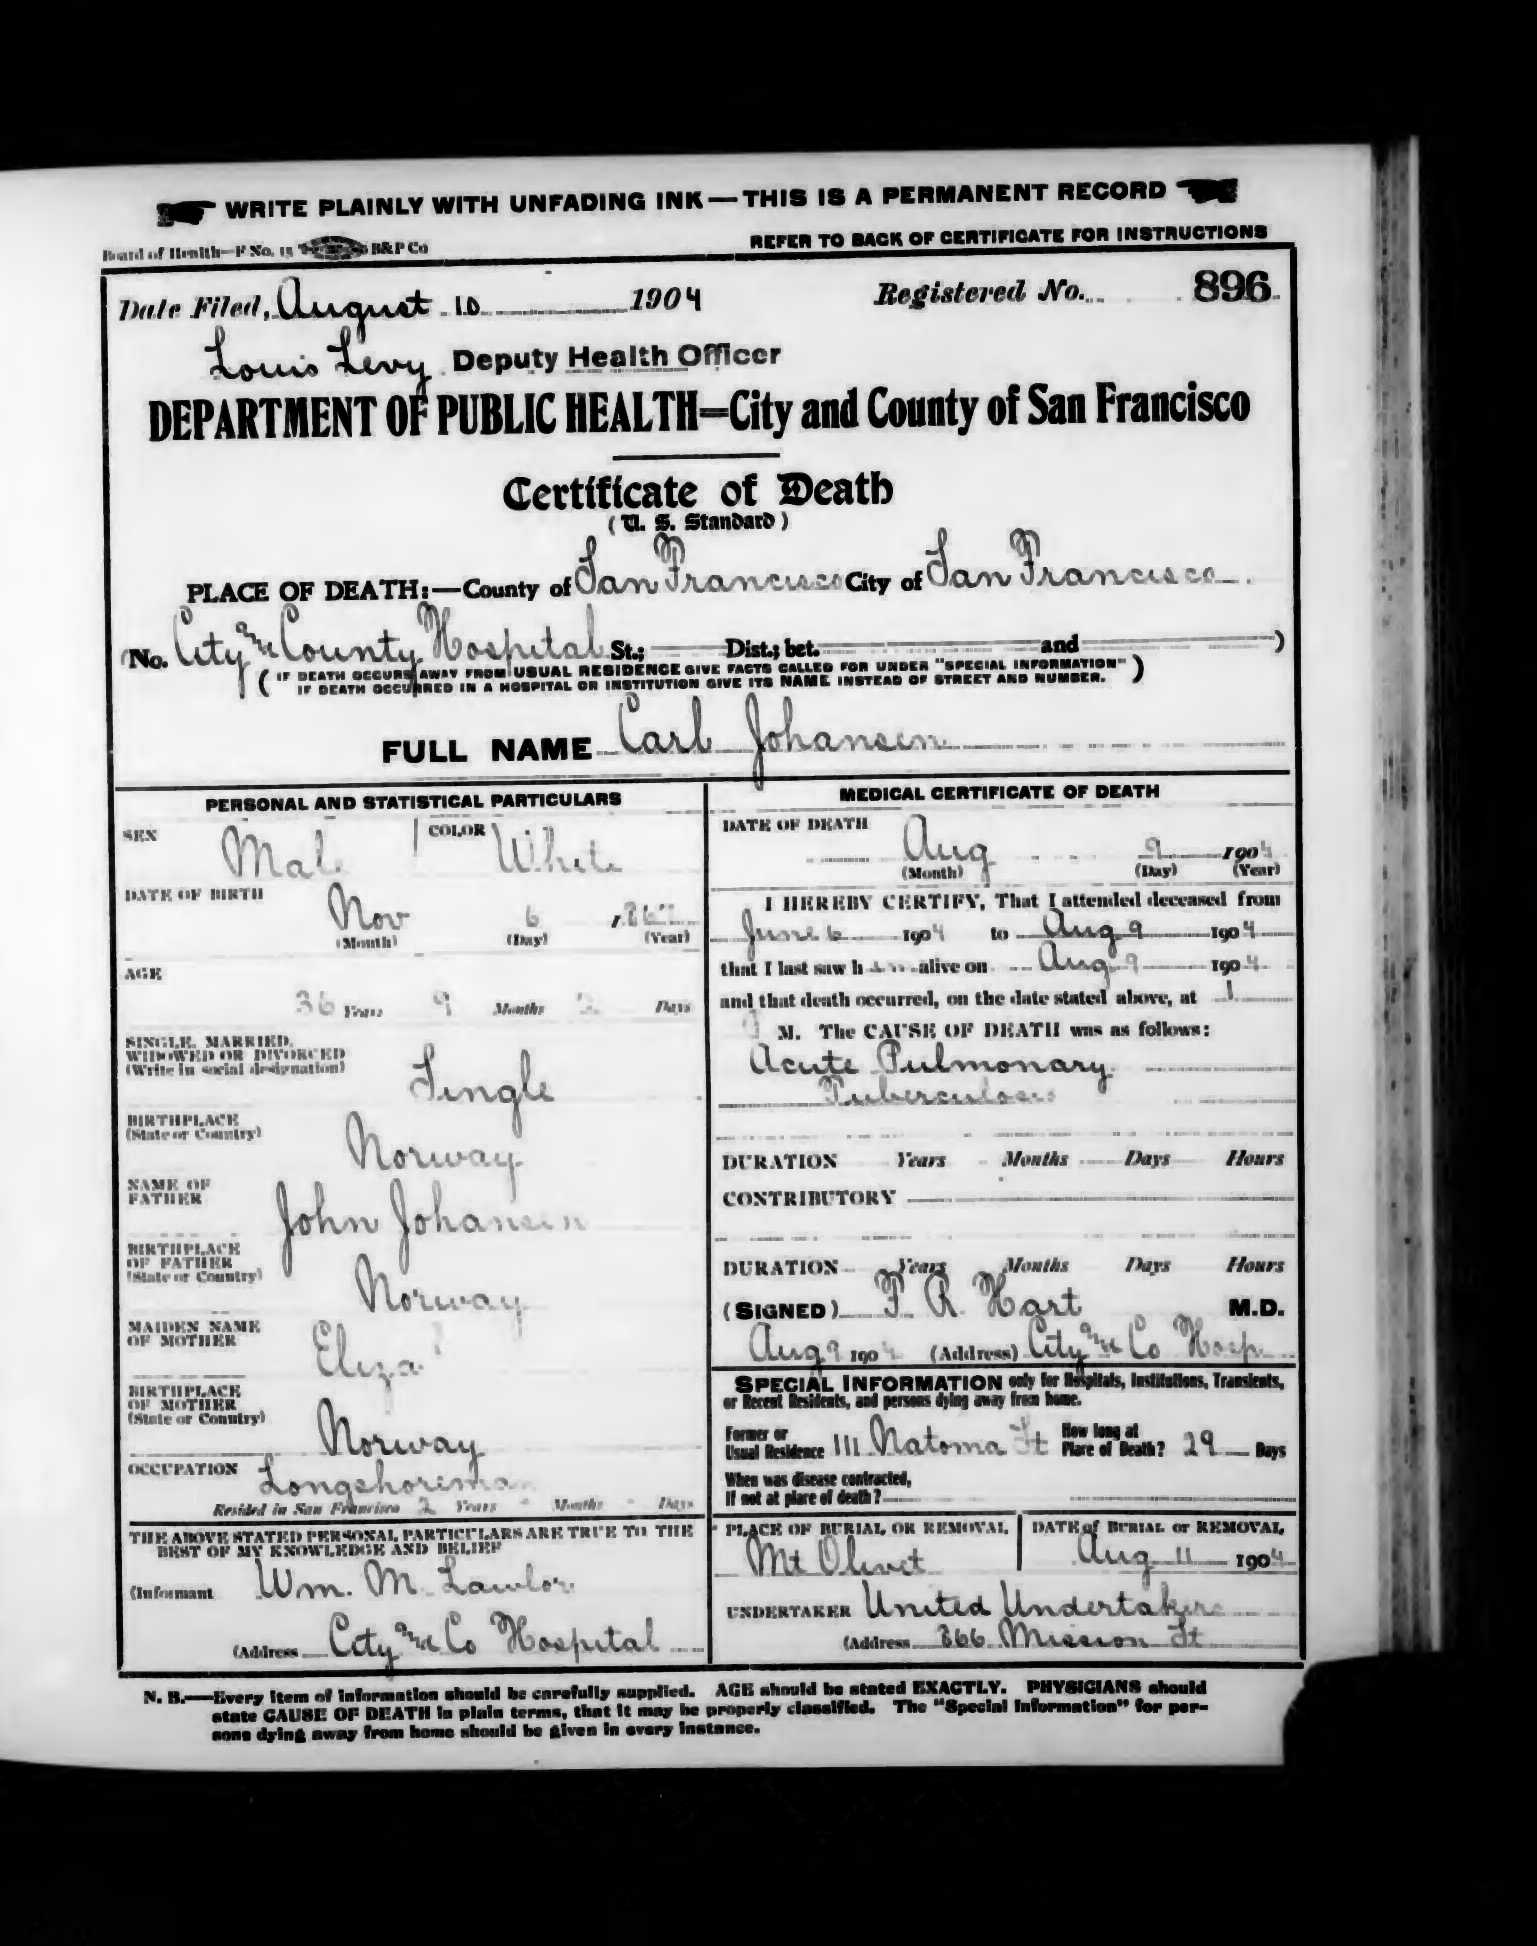 WRITE PLAINLY WITH UNFADING INK — THIS IS A PERMANENT RECORD
Board of Health—F No. 15 B&P Co
REFER TO BACK OF CERTIFICATE FOR INSTRUCTIONS
Date Filed, August 10 1904 Registered No. 896
Louis Levy Deputy Health Officer
DEPARTMENT OF PUBLIC HEALTH=City and County of San Francisco
Certificate of Death
(U. S. Standard)
PLACE OF DEATH:—County of San Francisco City of San Francisco
(No. City and County Hospital St.; Dist.; bet. and )
(IF DEATH OCCURS AWAY FROM USUAL RESIDENCE GIVE FACTS CALLED FOR UNDER "SPECIAL INFORMATION"
IF DEATH OCCURRED IN A HOSPITAL OR INSTITUTION GIVE ITS NAME INSTEAD OF STREET AND NUMBER.)
FULL NAME Carl Johansen
PERSONAL AND STATISTICAL PARTICULARS
SEX Male COLOR White
DATE OF BIRTH
Nov 6 1867
(Month) (Day) (Year)
AGE
36 Years 9 Months Days
SINGLE, MARRIED,
WIDOWED OR DIVORCED
(Write in social designation)
Single
BIRTHPLACE
(State or Country)
Norway
NAME OF
FATHER
John Johansen
BIRTHPLACE
OF FATHER
(State or Country)
Norway
MAIDEN NAME
OF MOTHER
Eliza ?
BIRTHPLACE
OF MOTHER
(State or Country)
Norway
OCCUPATION Longshoreman
Resided in San Francisco 2 Years - Months - Days
THE ABOVE STATED PERSONAL PARTICULARS ARE TRUE TO THE
BEST OF MY KNOWLEDGE AND BELIEF
(Informant Wm. M. Lawlor
(Address City and Co Hospital
MEDICAL CERTIFICATE OF DEATH
DATE OF DEATH
Aug 9 1904
(Month) (Day) (Year)
I HEREBY CERTIFY, That I attended deceased from
June 6 1904 to Aug 9 1904
that I last saw him alive on Aug 9 1904
and that death occurred, on the date stated above, at 1
M. The CAUSE OF DEATH was as follows:
Acute Pulmonary
Tuberculosis
DURATION Years Months Days Hours
CONTRIBUTORY
DURATION Years Months Days Hours
(SIGNED) F. R. Hart M.D.
Aug 9 1904 (Address) City and Co Hosp
SPECIAL INFORMATION only for Hospitals, Institutions, Transients,
or Recent Residents, and persons dying away from home.
Former or
Usual Residence 111 Natoma St How long at
Place of Death? 29 Days
When was disease contracted,
If not at place of death?
PLACE OF BURIAL OR REMOVAL DATE of BURIAL or REMOVAL
Mt Olivet Aug 11 1904
UNDERTAKER United Undertakers
(Address 866 Mission St
N. B.—Every item of information should be carefully supplied. AGE should be stated EXACTLY. PHYSICIANS should
state CAUSE OF DEATH in plain terms, that it may be properly classified. The "Special Information" for per-
sons dying away from home should be given in every instance.